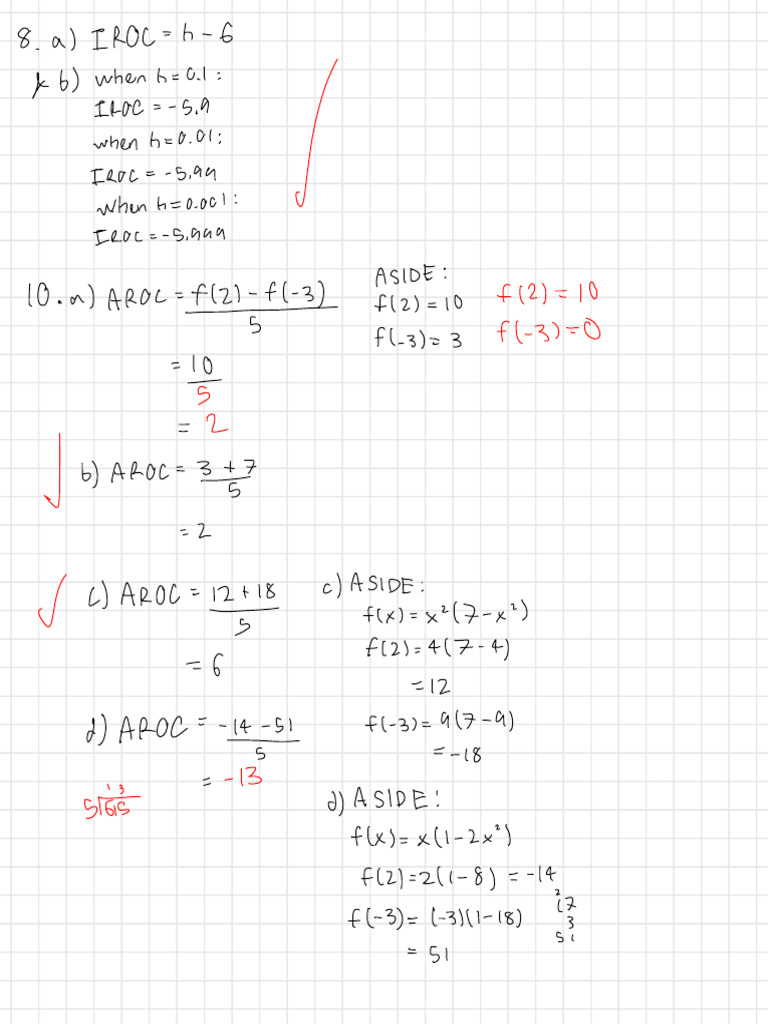 8. a) IROC = h - 6
b) when h = 0.1 :
IROC = -5.9
when h = 0.01 :
IROC = -5.99
when h = 0.001 :
IROC = -5.999
10. a) AROC = f(2) - f(-3)
5
ASIDE :
f(2) = 10
f(-3) = 3
f(2) = 10
f(-3) = 0
= 10
5
= 2
b) AROC = 3 + 7
5
= 2
c) AROC = 12 + 18
5
= 6
c) ASIDE :
f(x) = x²(7 - x²)
f(2) = 4(7 - 4)
= 12
f(-3) = 9(7 - 9)
= -18
d) AROC = -14 - 51
5
= -13
13
5 65
d) ASIDE :
f(x) = x(1 - 2x²)
f(2) = 2(1 - 8) = -14
f(-3) = (-3)(1 - 18)
= 51
2
17
3
51